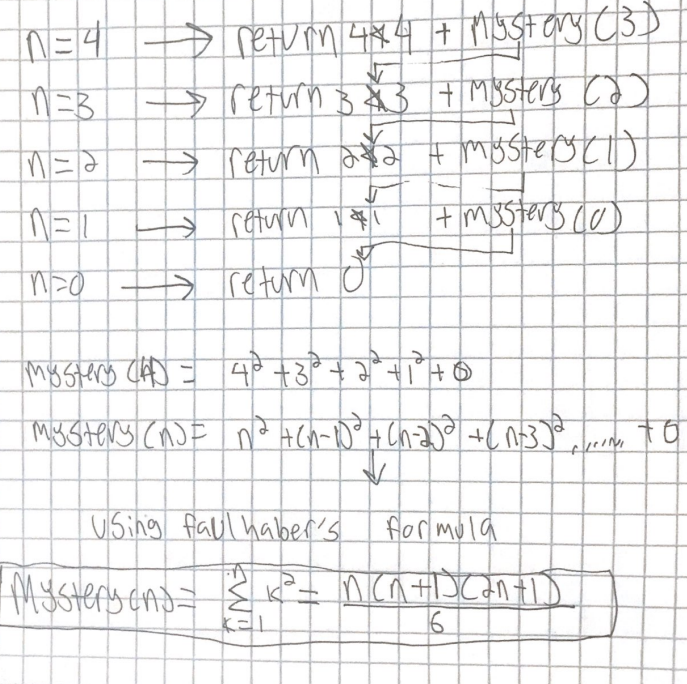 n=4 → return 4*4 + Mystery(3)
n=3 → return 3*3 + Mystery(2)
n=2 → return 2*2 + mystery(1)
n=1 → return 1*1 + mystery(0)
n=0 → return 0
mystery(4) = 4² + 3² + 2² + 1² + 0
mystery(n) = n² + (n-1)² + (n-2)² + (n-3)² ...... + 0
↓
using faulhaber's formula
Mystery(n) = n Σ k=1 k² = n(n+1)(2n+1) / 6